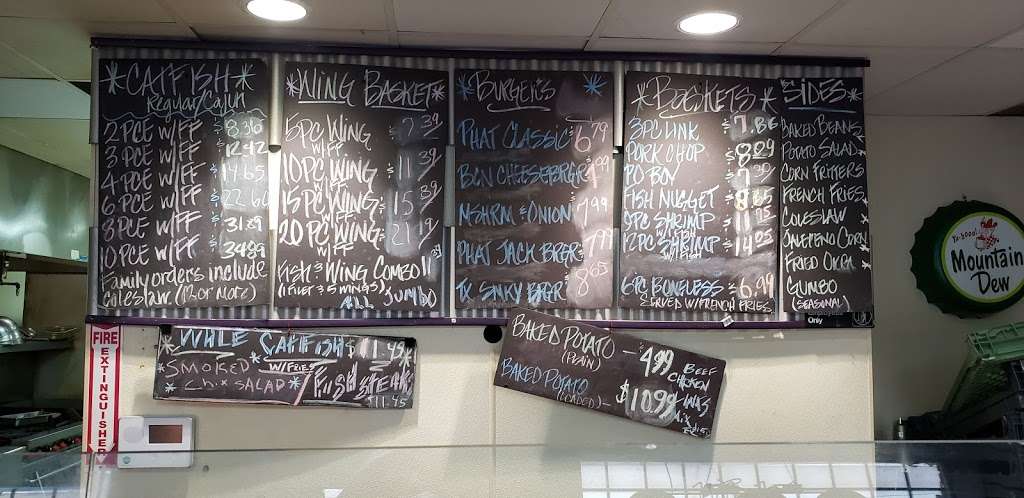 *CATFISH*
Regular/Cajun
2 PCE W/FF $8.36
3 PCE W/FF 12.42
4 PCE W/FF $14.65
6 PCE W/FF 22.60
8 PCE W/FF 31.89
10 PCE W/FF 34.89
Family orders include
coleslaw (12 or more)
*WING BASKET*
5 PC WING $7.39
W/FF
10 PC WING $11.39
W/FF
15 PC WING $15.39
W/FF
20 PC WING $21.19
W/FF
FISH & WING COMBO 11
(1 FILET & 5 WINGS)
ALL JUMBO
*BURGERS*
PHAT CLASSIC $6.79
BCN CHEESEBRGR
MSHRM & ONION $7.99
PHAT JACK BRGR 7.99
TX BRGR $8.65
*BASKETS*
3 PC LINK $7.86
PORK CHOP $8.29
PO BOY $7.39
FISH NUGGET $8.65
9PC SHRIMP
W/FF
12 PC SHRIMP $14.05
W/FF
6PC BONELESS $6.99
SERVED W/FRENCH FRIES
*SIDES*
BAKED BEANS
POTATO SALAD
CORN FRITTERS
FRENCH FRIES
COLESLAW
JALEPENO CORN
FRIED OKRA
GUMBO
(SEASONAL)
Only
WHLE CATFISH $11.45
W/FRIES
*SMOKED
Chix SALAD*
FISH STEAK
$11.45
BAKED POTATO — 4.99
(PLAIN)
BAKED POTATO
(LOADED) — $10.99
BEEF
CHICKEN
FIRE
EXTINGUISHER
Ya-hooo!
Mountain
Dew